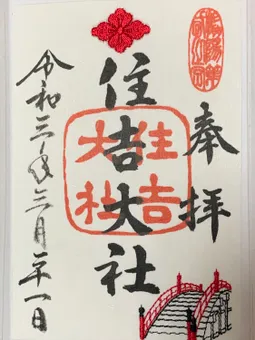 奉拝
住吉大社
住吉大社
令和三年三月二十一日